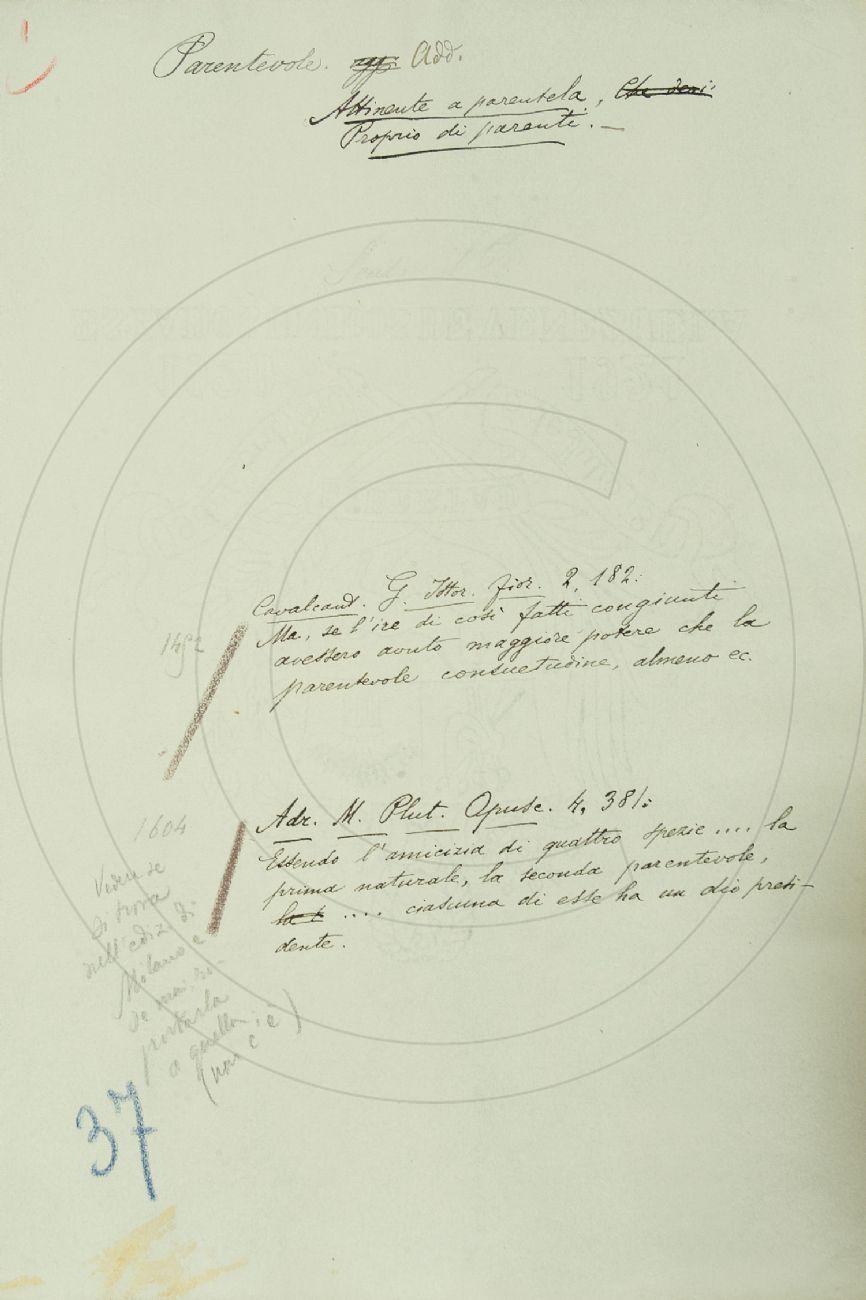 Parentevole. agg. Add.
Attinente a parentela, Che deri-
Proprio di parenti. —
Cavalcant. G. Istor. fior. 2, 182:
Ma, se l'ire di così fatti congiunti
avessero avuto maggiore potere che la
parentevole consuetudine, almeno ec.
1452
Adr. M. Plut. Opusc. 4, 381:
Essendo l'amicizia di quattro spezie .... la
prima naturale, la seconda parentevole,
.... ciascuna di esse ha un dio presi-
dente.
1604
Vedere se
si trova
nell'ediz. di
Milano e
se mai, ri-
portarla
a quella:
(non c'è)
37